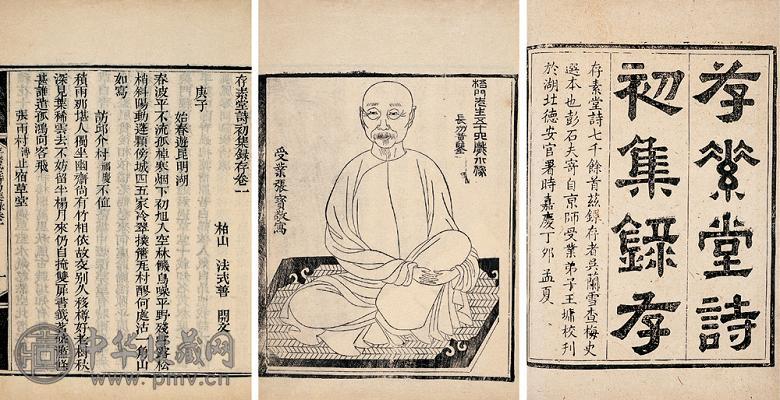 存素堂詩
初集錄存
存素堂詩七千餘首茲錄存者吳蘭雪查梅史
選本也彭石夫寄自京師受業弟子王墉校刊
於湖北德安官署時嘉慶丁卯孟夏
梧門先生五十
小像
受業張寶敬寫
存素堂詩初集錄存卷一
柏山 法式善 開文
庚子
始春遊昆明湖
春波平不流孤棹寒烟下初旭入空林幽鳥噪平野殘雪露松
梢斜陽動蓬顆傍城四五家冷翠撲簷瓦村醪何處沽山
如寫
訪邱介村不值
積雨那堪人獨坐幽齋尚有竹相依故交別久移樽好老樹秋
深見葉稀雲去不妨留半榻月來仍自掩雙扉書籤
甚誰遣孤鴻向客飛
張雨村止宿草堂
中华收藏网
www.pmv.cn